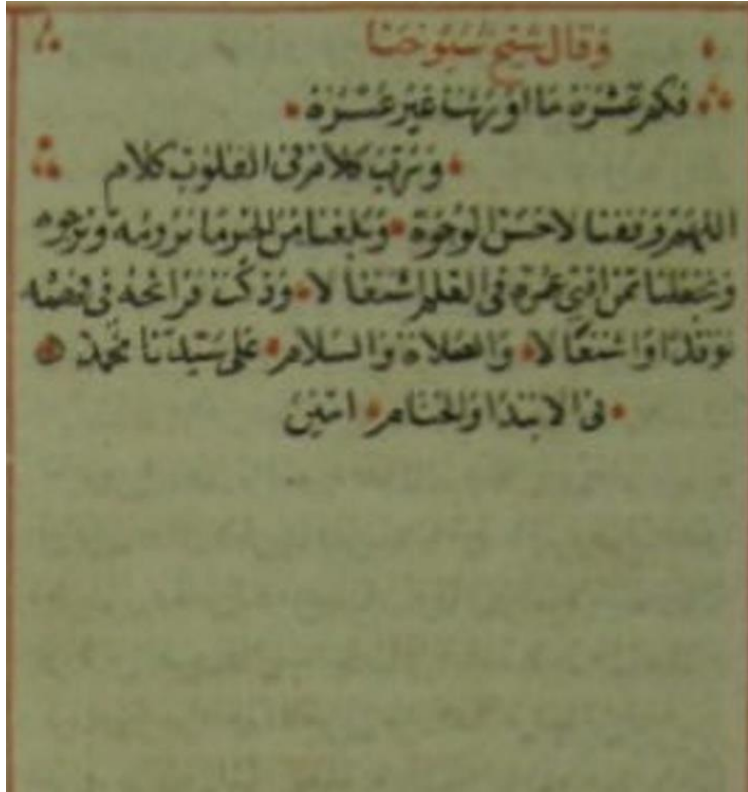 وقال شيخ شيوخنا
فكم عثرة ما اورثت غير عسرة
ورتب كلام فى القلوب كلام
اللهم وفقنا لاحسن الوجوه وبلغنا من الخير ما نرومه ونرجوه
وتجعلنا ممن افنى عمره فى العلم اشتغالا وذكت قرائحه فى
توقدا واشتعالا والصلاة والسلام على سيدنا محمد
فى الابتدا والختام امين